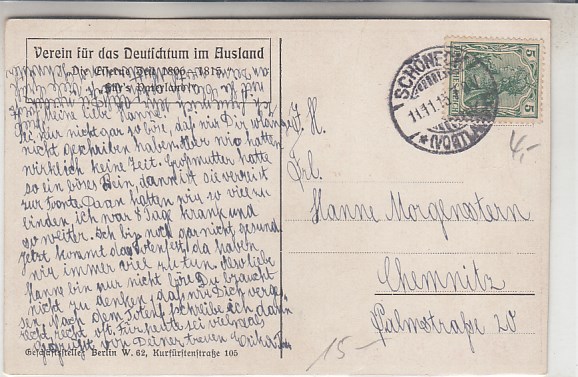 Verein für das Deutschtum im Ausland
Die Eiserne Zeit 1806-1815
Meine liebe Hanne!
Sei nur nicht gar so böse, daß wir Dir so lange
nicht geschrieben haben. Aber wir hatten
wirklich keine Zeit. Großmutter hatte
so ein böses Bein, dann ist sie verreist
zur Tante Daran hatten wir so viel zu
binden ich war 8 Tage krank und
so weiter. Ich bin noch gar nicht gesund.
Jetzt kommt das Totenfest, da haben
wir immer viel zu tun. Also liebe
Hanne bin nur nicht böse Du brauchst
nicht zu denken, daß wir Dich verges-
sen, Nach dem Totenf. schreibe ich dann
recht, recht oft. Für heute sei vielmals
gegrüßt von Deiner treuen
Geschäftsstelle: Berlin W. 62, Kurfürstenstraße 105
SCHÖNE
11.11.13
5 5
4,-
Frl.
Hanne Morgenstern
Chemnitz
Palmstraße 20
15-